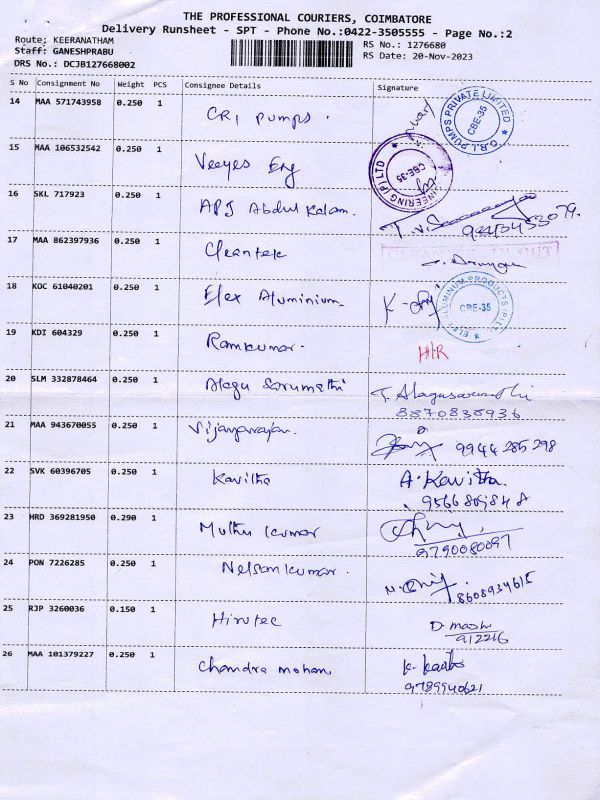 THE PROFESSIONAL COURIERS, COIMBATORE
Delivery Runsheet - SPT - Phone No.:0422-3505555 - Page No.:2
Route: KEERANATHAM
Staff: GANESHPRABU
DRS No.: DCJB127668002
RS No.: 1276680
RS Date: 20-Nov-2023
S No Consignment No Weight PCS Consignee Details Signature
14 MAA 571743958 0.250 1 CRI Pumps.
C.R.I. PUMPS PRIVATE LIMITED
CBE-35
15 MAA 106532542 0.250 1 Veeyes Eng
CBE-35
16 SKL 717923 0.250 1 APJ Abdul Kalam.
17 MAA 862397936 0.250 1 Cleantek
18 KOC 61040201 0.250 1 Elex Aluminium.
CBE-35
19 KDI 604329 0.250 1 Ramkumar.
20 SLM 332878464 0.250 1 Alagu Sarumathi T. Alagusarumathi
8870835936
21 MAA 943670055 0.250 1 Vijayarajan. 9944 285 298
22 SVK 60396705 0.250 1 Kavitha A. Kavitha.
23 HRD 369281950 0.290 1 Muthu kumar
9790080097
24 PON 7226285 0.250 1 Nelsonkumar.
8608934615
25 RJP 3260036 0.150 1 Hirotec
912216
26 MAA 101379227 0.250 1 Chandra mohan
9789940621